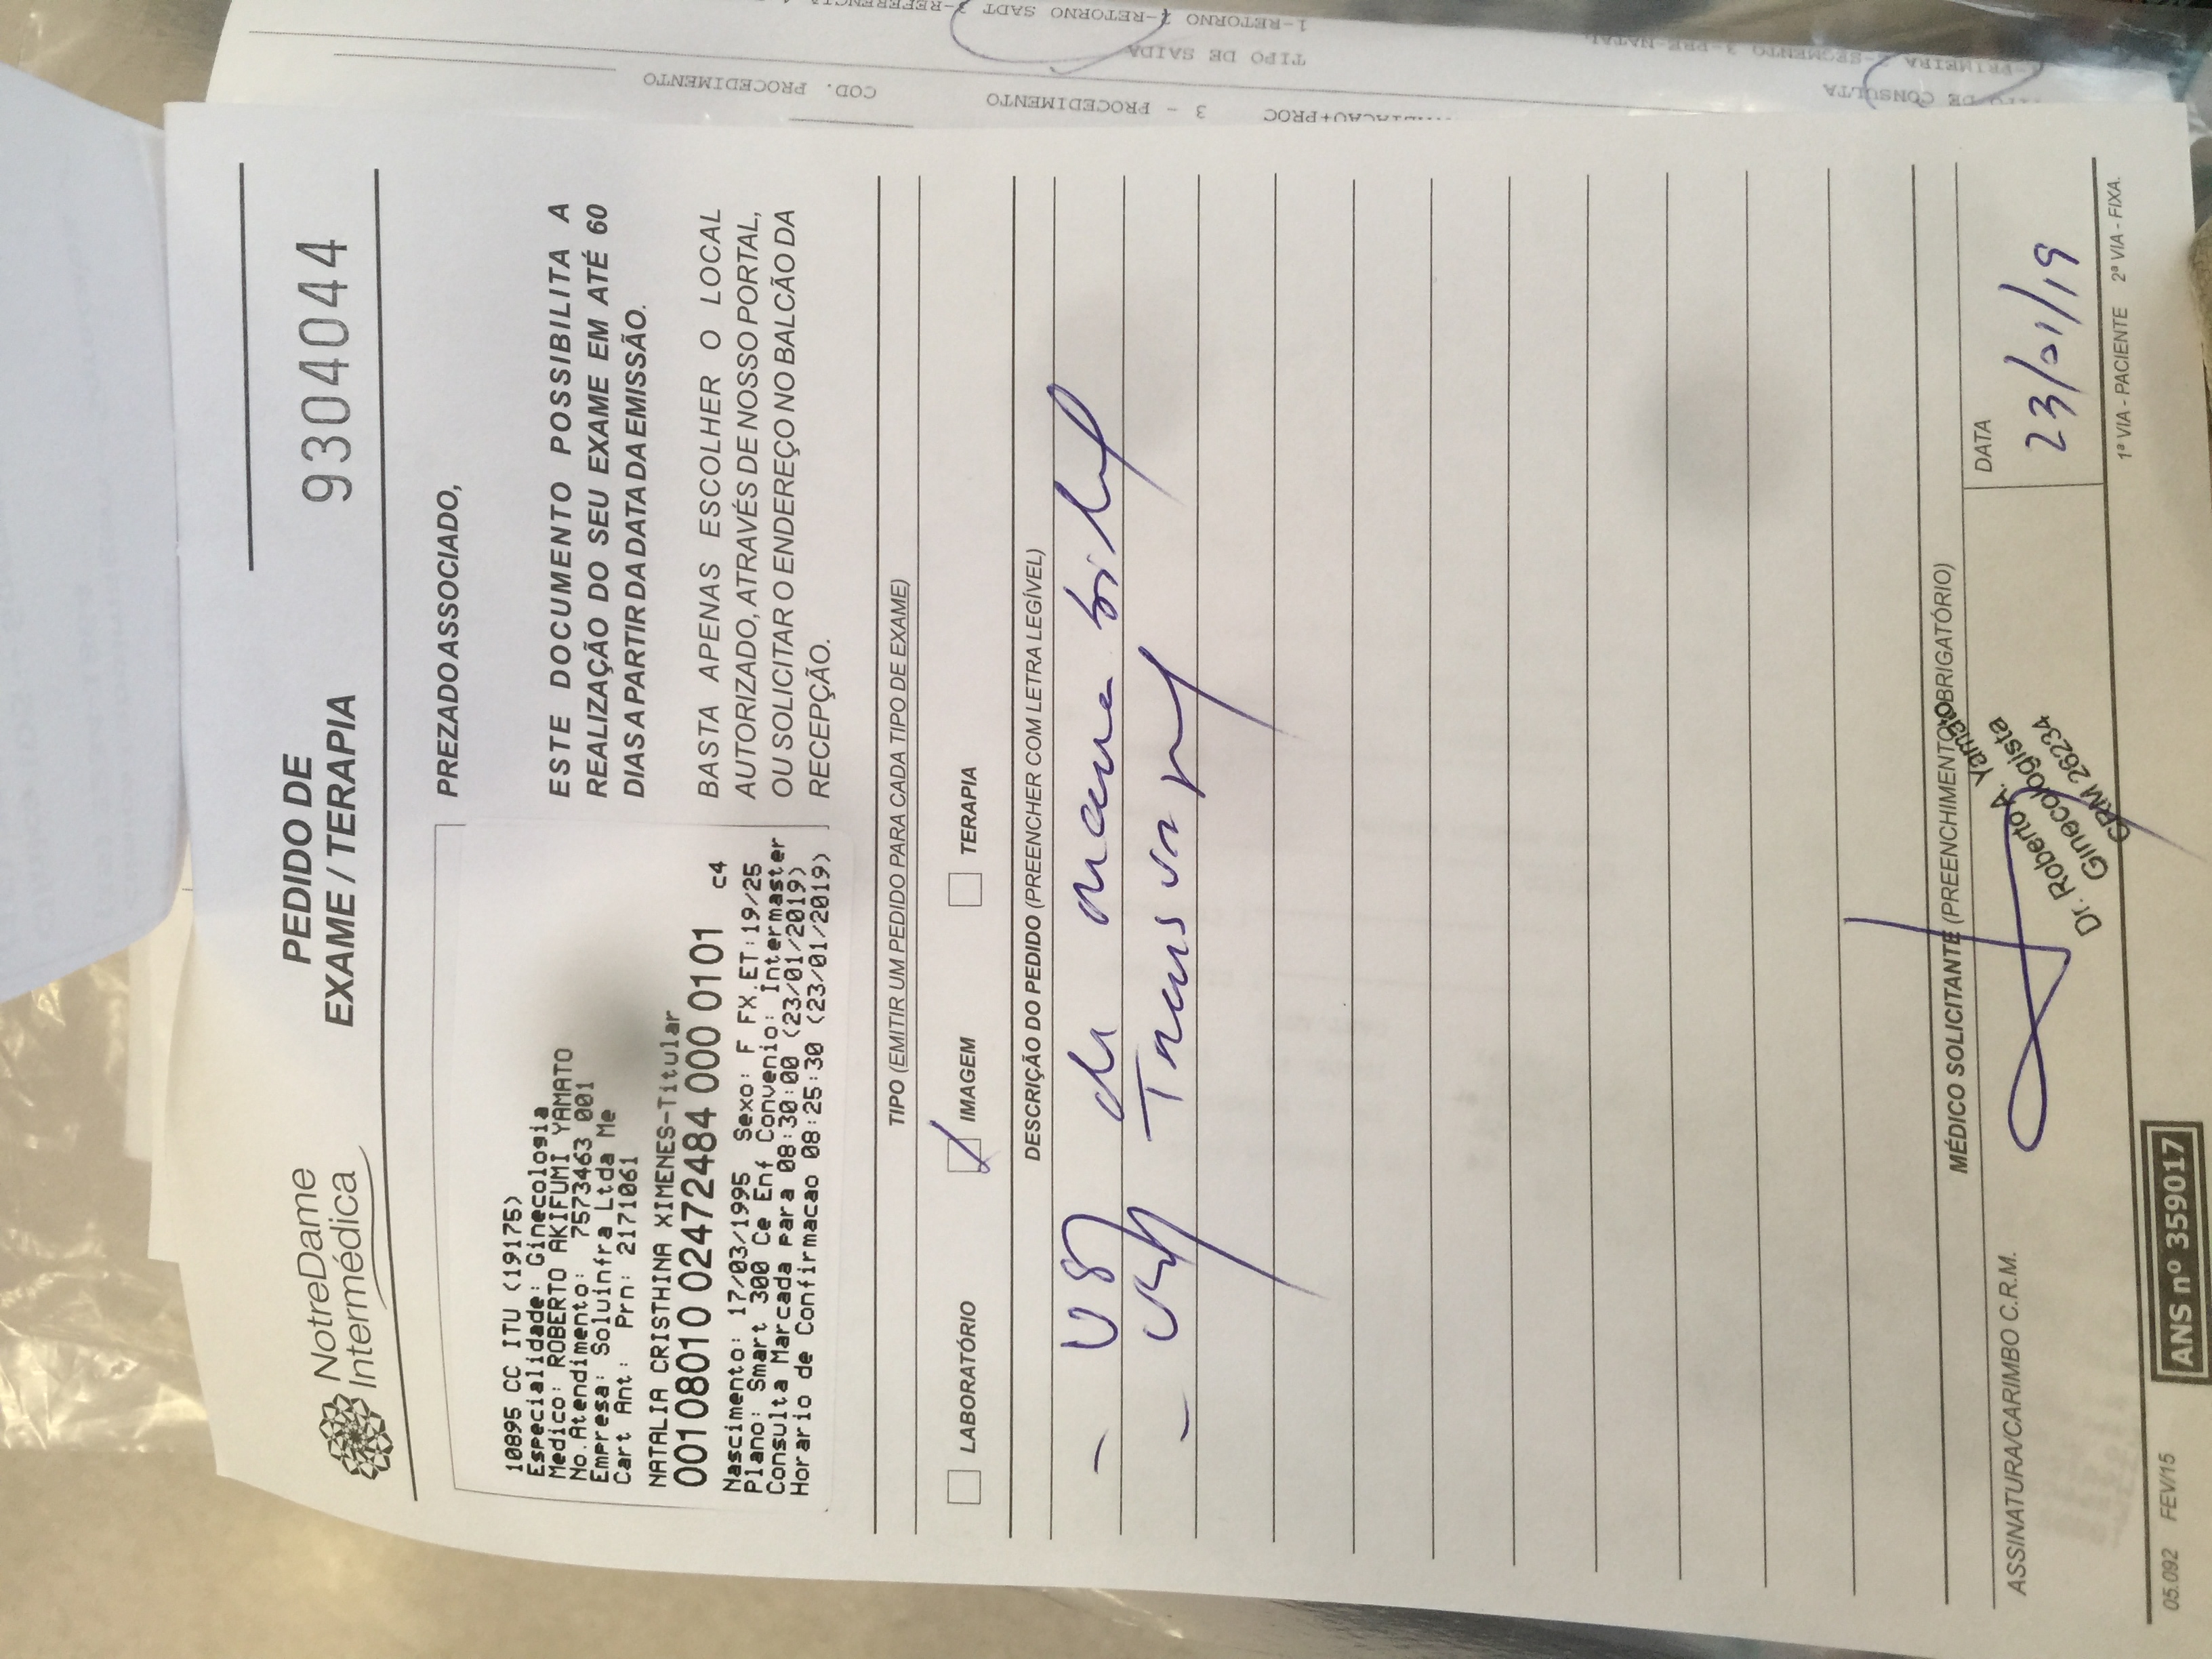 NotreDame
Intermédica
PEDIDO DE
EXAME / TERAPIA
9304044
10895 CC ITU (19175)
Especialidade: Ginecologia
Medico: ROBERTO AKIFUMI YAMATO
No.Atendimento: 7573463 001
Empresa: Soluinfra Ltda Me
Cart Ant: Prn: 2171061
NATALIA CRISTHINA XIMENES-Titular
00108010 02472484 000 0101 c4
Nascimento: 17/03/1995 Sexo: F FX.ET:19/25
Plano: Smart 300 Ce Enf Convenio: Intermaster
Consulta Marcada para 08:30:00 (23/01/2019)
Horario de Confirmacao 08:25:30 (23/01/2019)
PREZADO ASSOCIADO,
ESTE DOCUMENTO POSSIBILITA A
REALIZAÇÃO DO SEU EXAME EM ATÉ 60
DIAS A PARTIR DA DATA DA EMISSÃO.
BASTA APENAS ESCOLHER O LOCAL
AUTORIZADO, ATRAVÉS DE NOSSO PORTAL,
OU SOLICITAR O ENDEREÇO NO BALCÃO DA
RECEPÇÃO.
TIPO (EMITIR UM PEDIDO PARA CADA TIPO DE EXAME)
LABORATÓRIO IMAGEM TERAPIA
DESCRIÇÃO DO PEDIDO (PREENCHER COM LETRA LEGÍVEL)
- USG de mama bilat
- USG Transvag
MÉDICO SOLICITANTE (PREENCHIMENTO OBRIGATÓRIO)
ASSINATURA/CARIMBO C.R.M.
Dr. Roberto A. Yamato
Ginecologista
CRM 26234
DATA
23/01/19
1ª VIA - PACIENTE 2ª VIA - FIXA.
05.092 FEV/15
ANS nº 359017
COD. PROCEDIMENTO
3 - PROCEDIMENTO
TIPO DE SAIDA
1-RETORNO 2-RETORNO SADT 3-REFERENCIA
DE CONSULTA
-PRIMEIRA 2-SEGMENTO 3 PRE-NATAL